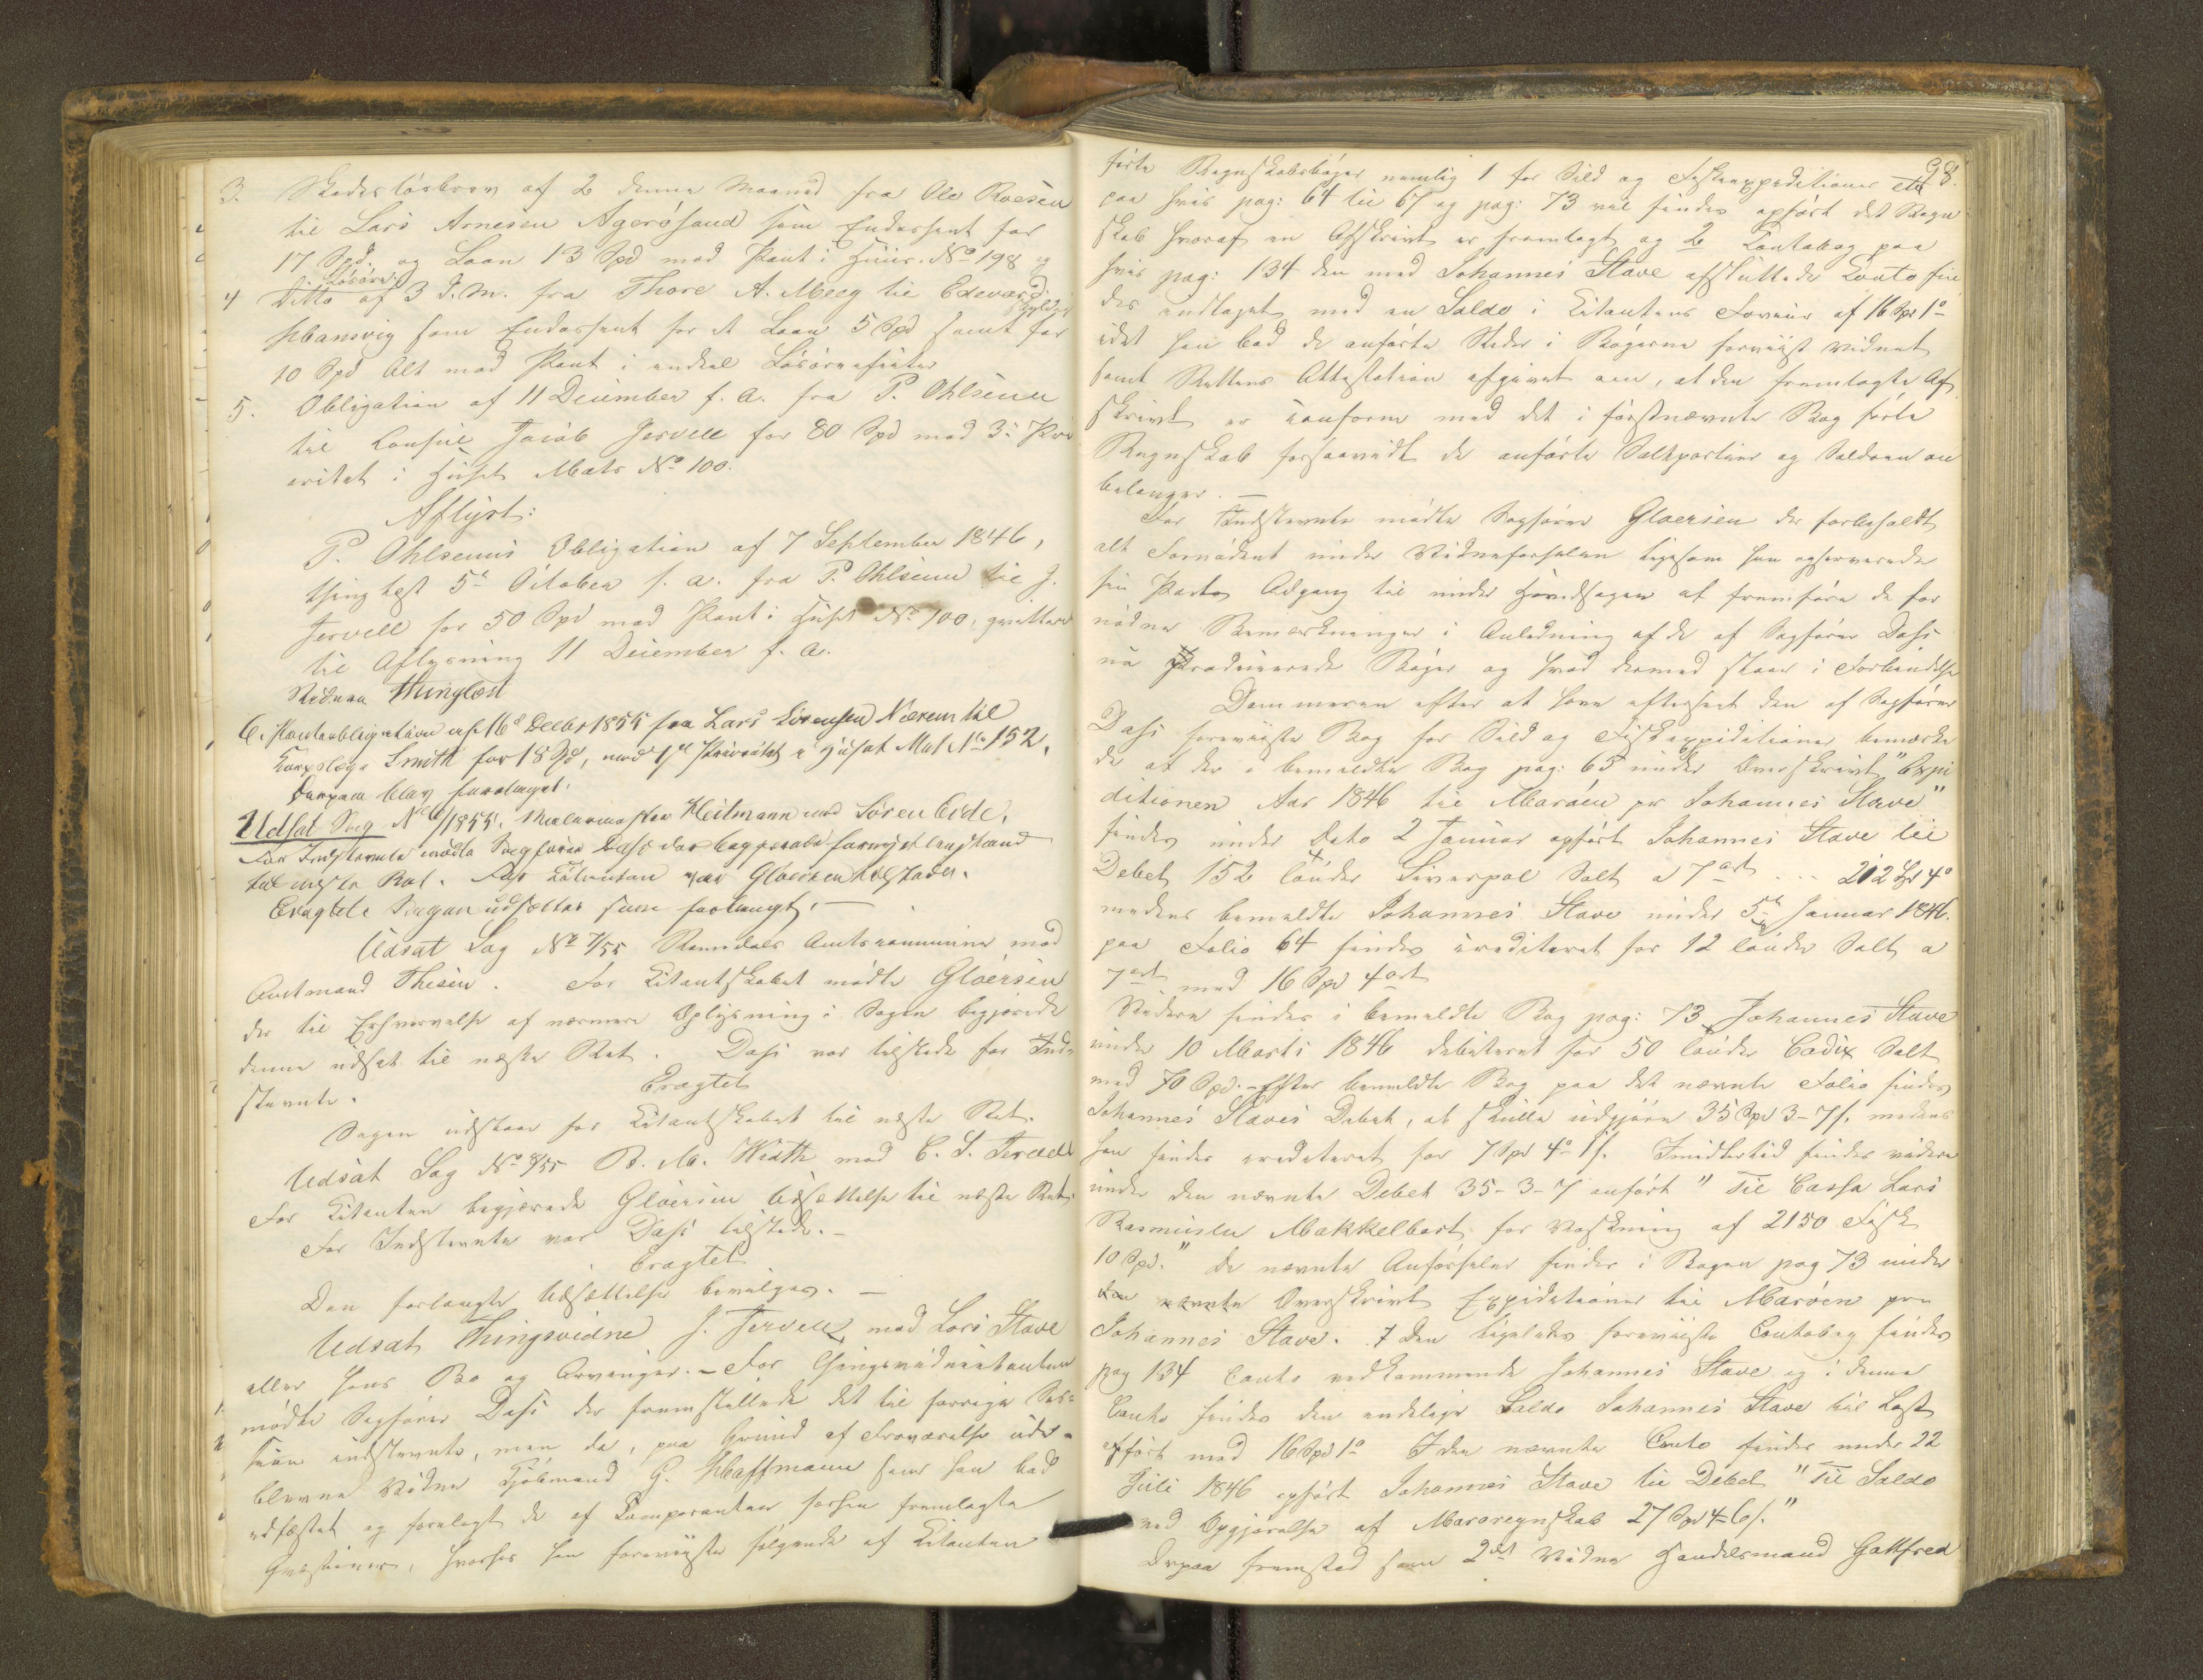 3. Skadesløsbrev af 2 denne Maaned fra Ole Roesen
til Lars Arnesen Agerøsund som Endossent for
17 Spd. og Laan 13 Spd mod Pant i Huus No 198 og
Løsøre
4 Ditto af 3 d. M. fra Thore A. Meeg til Edevard
Hansvig som Endossent for et Laan 5 Spd samt for skyldig
10 Spd Alt mod Pant i endeel Løsøreeffecter
5. Obligation af 11 December f. A. fra P. Ohlsenn
til Consul Jacob Jervell for 80 Spd med 3die Pri
oritet i Huset Mats No 100.
Aflyst:
P. Ohlsenns Obligation af 7 September 1846,
thinglæst 5te October s. a. fra P. Ohlsenn til J.
Jervell for 50 Spd mod Pant i Huset No 100, qvitteret
til Aflysning 11 December f. A.
Videre Thinglæst
6. Panteobligation af 16de Decbr 1855 fra Lars Sivensen Nærem til
Korpslæge Smith for 18 Spd, med 1ste Prioritet i Huset Mat No 152.
Derpaa blev foretaget:
Udsat Sag No 6/1855. Malermester Heitmann mod Søren Eide.
For Indstevnte mødte Sagfører Dass der begjerede fornyet Anstand
til næste Ret. For Citanten var Gløersen tilstede.
Eragtet Sagen udsættes som forlangt.
Udsat Sag No 7/55 Romsdals Amtscommune mod
Amtmand Thesen. For Citantskabet mødte Gløersen
der til Erhvervelse af nærmere Oplysning i Sagen begjerede
denne udsat til næste Ret. Dass var tilstede for Ind-
stevnte.
Eragtet
Sagen udstaar for Citantskabet til næste Ret.
Udsat Sag No 8/55 B. M. Wiith mod C. L. Jervell
For Citanten begjærede Gløersen Udsættelse til næste Ret.
For Indstevnte var Dass tilstede.
Eragtet
Den forlangte Udsættelse bevilges.
Udsat Thingsvidne J. Jervell mod Lars Stave
eller hans Bo og Arvinger. - For Thingsvidnecitanten
mødte Sagfører Dass der fremstillede det til forrige Ses-
sion indstevnte, men da, paa Grund af Fraværelse ude-
blevne Vidne Kjøbmand G. Hoffmann som han bad
edfæstet og forelagt de af Comparenten forhen fremlagte
Qvæstioner, hvorhos han foreviiste følgende af Citanten
98.
førte Regnskabsbøger nemlig 1 for Sild og Fiskeexpeditioner
paa hvis pag: 64 til 67 og pag: 73 vil findes opført det Regn
skab hvoraf en Afskrivt er fremlagt og 2 Contobog paa
hvis pag: 134 den med Johannes Stave afsluttede Conto fin
des indtaget med en Saldo i Citantens Faveur af 16 Spd 1o
idet han bad de anførte Steder i Bøgerne foreviist Vidnet
samt Rettens Attestation afgivet om, at den fremlagte Af
skrivt er conform med det i førstnævnte Bog førte
Regnskab forsaavidt de anførte Saltpartier og Saldoen an
belanger. —
For Indstevnte mødte Sagfører Gløersen der forbeholdt
alt Fornødent under Vidneførselen ligesom han reserverede
sin Part Adgang til under Hovedsagen at fremføre de for
nødne Bemærkninger i Anledning af de af Sagfører Dass
nu producerede Bøger og hvad dermed staar i Forbindelse
Dommeren efter at have efterseet den af Sagfører
Dass foreviiste Bog for Sild og Fiskexpeditioner bemærke
de at der i bemeldte Bog pag: 65 under Overskrivt "Expe
ditionen Aar 1846 til Marøen pr Johannes Stave"
findes under Dato 2 Januar opført Johannes Stave til
Debet 152 tønder Liverpol Salt a 7 ort . . . 212 Spd 4o
medens bemeldte Johannes Stave under 5te Januar 1846.
paa Folio 64 findes crediteret for 12 tønder Salt a
7 ort med 16 Spd 4 ort
Videre findes i bemeldte Bog pag: 73 Johannes Stave
under 10 Marts 1846 debiteret for 50 tønder Cadix Salt
med 70 Spd. - Efter bemeldte Bog paa det nævnte Folio findes
Johannes Staves Debet, at skulle udgjøre 35 Spd 3 - 7 s. medens
han findes crediteret for 7 Spd 4o 1 s. Imidlertid findes videre
under den nævnte Debet 35 - 3 - 7 anført "Til Cassa Lars
Rasmuslu Makkelbost for Vaskning af 2150 Fisk
10 Spd." De nævnte Anførseler findes i Bogen pag 73 under
den nævnte Overskrivt Expeditioner til Marøen pr
Johannes Stave. I den ligeledes foreviiste Contobog findes
pag 134 Conto vedkommende Johannes Stave og i denne
Conto findes den endelige Saldo Johannes Stave til Last
opført med 16 Spd 1o I den nævnte Conto findes under 22
Juli 1846 opført Johannes Stave til Debet "Til Saldo
ved Opgjørelse af Marøregnskab 27 Spd 4 - 6 s."
Derpaa fremstod som 2det Vidne Handelsmand Gottfred